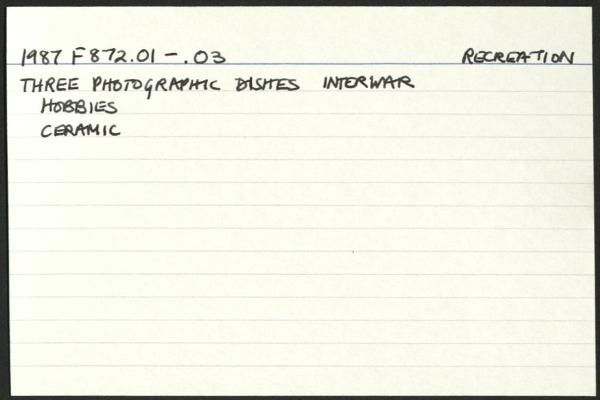 1987 F872.01 - .03 RECREATION
THREE PHOTOGRAPHIC DISHES INTERWAR
HOBBIES
CERAMIC